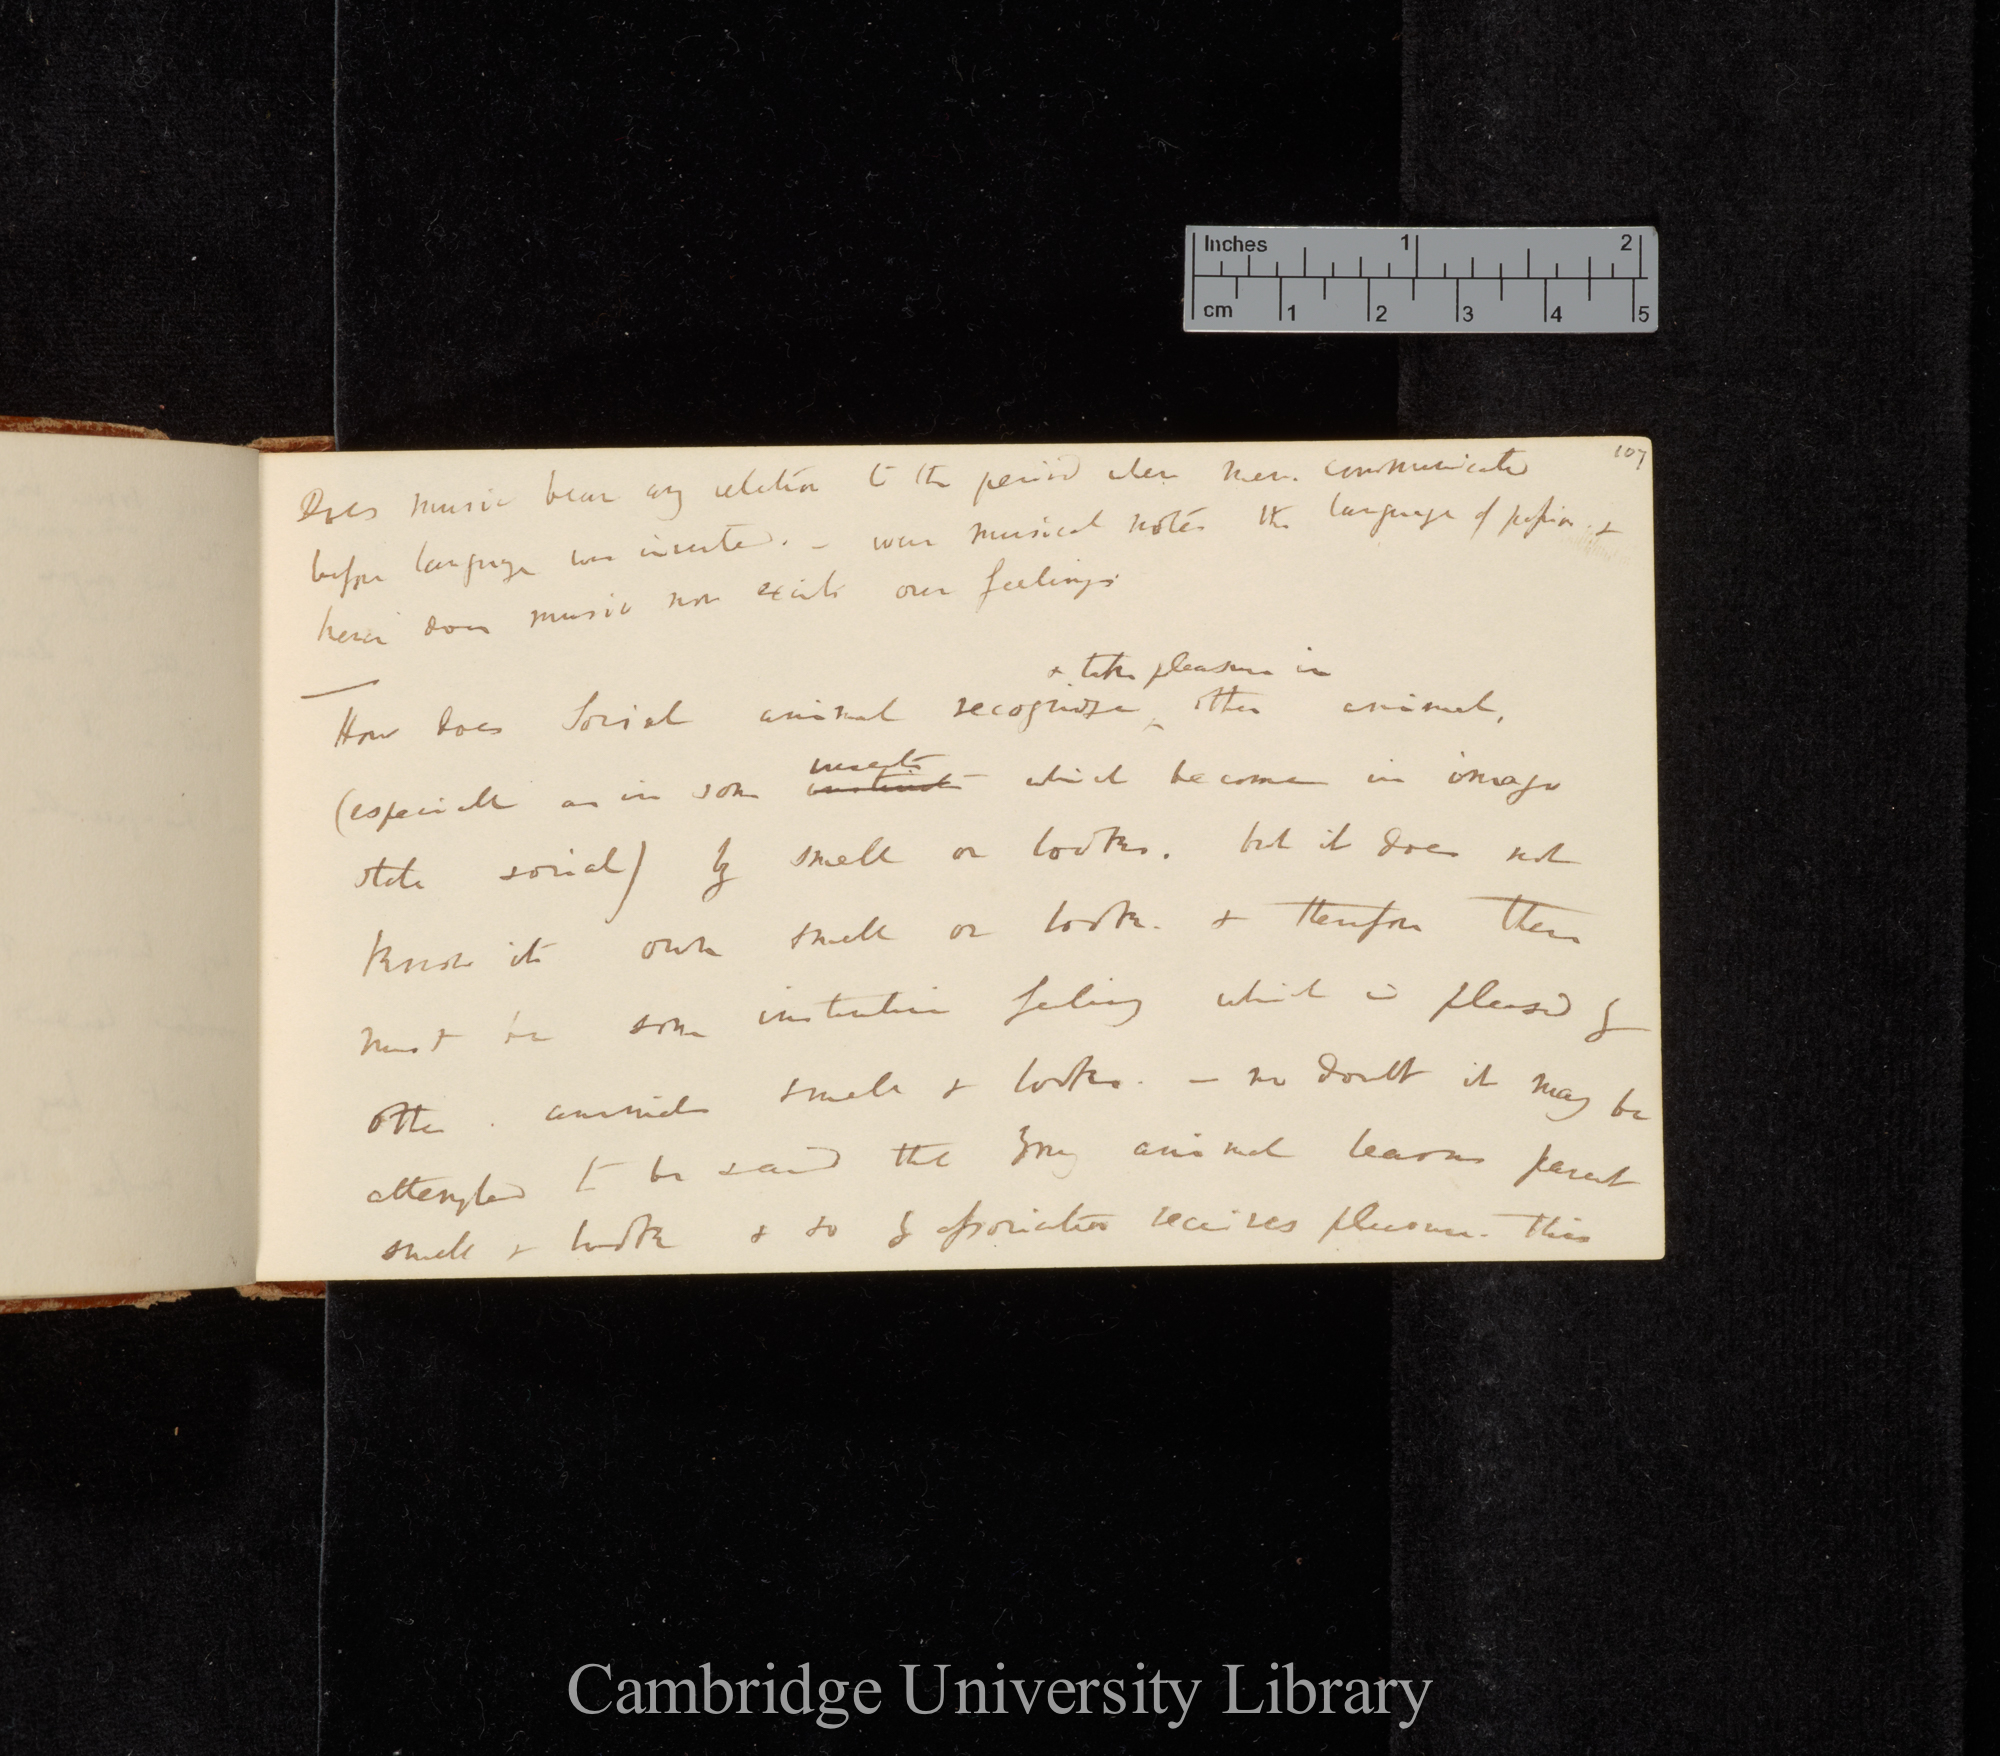 Inches 1 2
cm 1 2 3 4 5
107
Does music bear any relation to the period when men communicated
before language was invented. — were musical notes the language of passion. &
hence does music now excite our feelings
& take pleasure in
How does Social animal recognise other animal,
insects
(especially as in some instincts which become in imago
state social) by smell or looks. but it does not
know its own smell or look. & therefore there
must be some instinctive feeling which is pleased by
other animals smell & looks. — no doubt it may be
attempted to be said that young animal learns parent
smell & look & so by association receives pleasure. This
Cambridge University Library